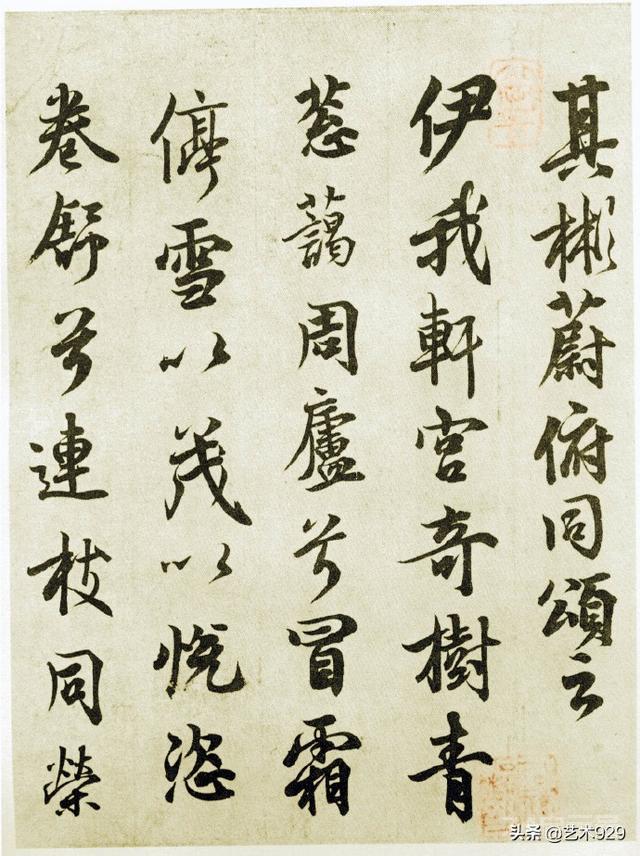 其彬蔚俯同頌云
伊我軒宮奇樹青
葱藹周廬兮冒霜
停雪以茂以悦恣
卷舒兮連枝同榮
头条 @艺术929